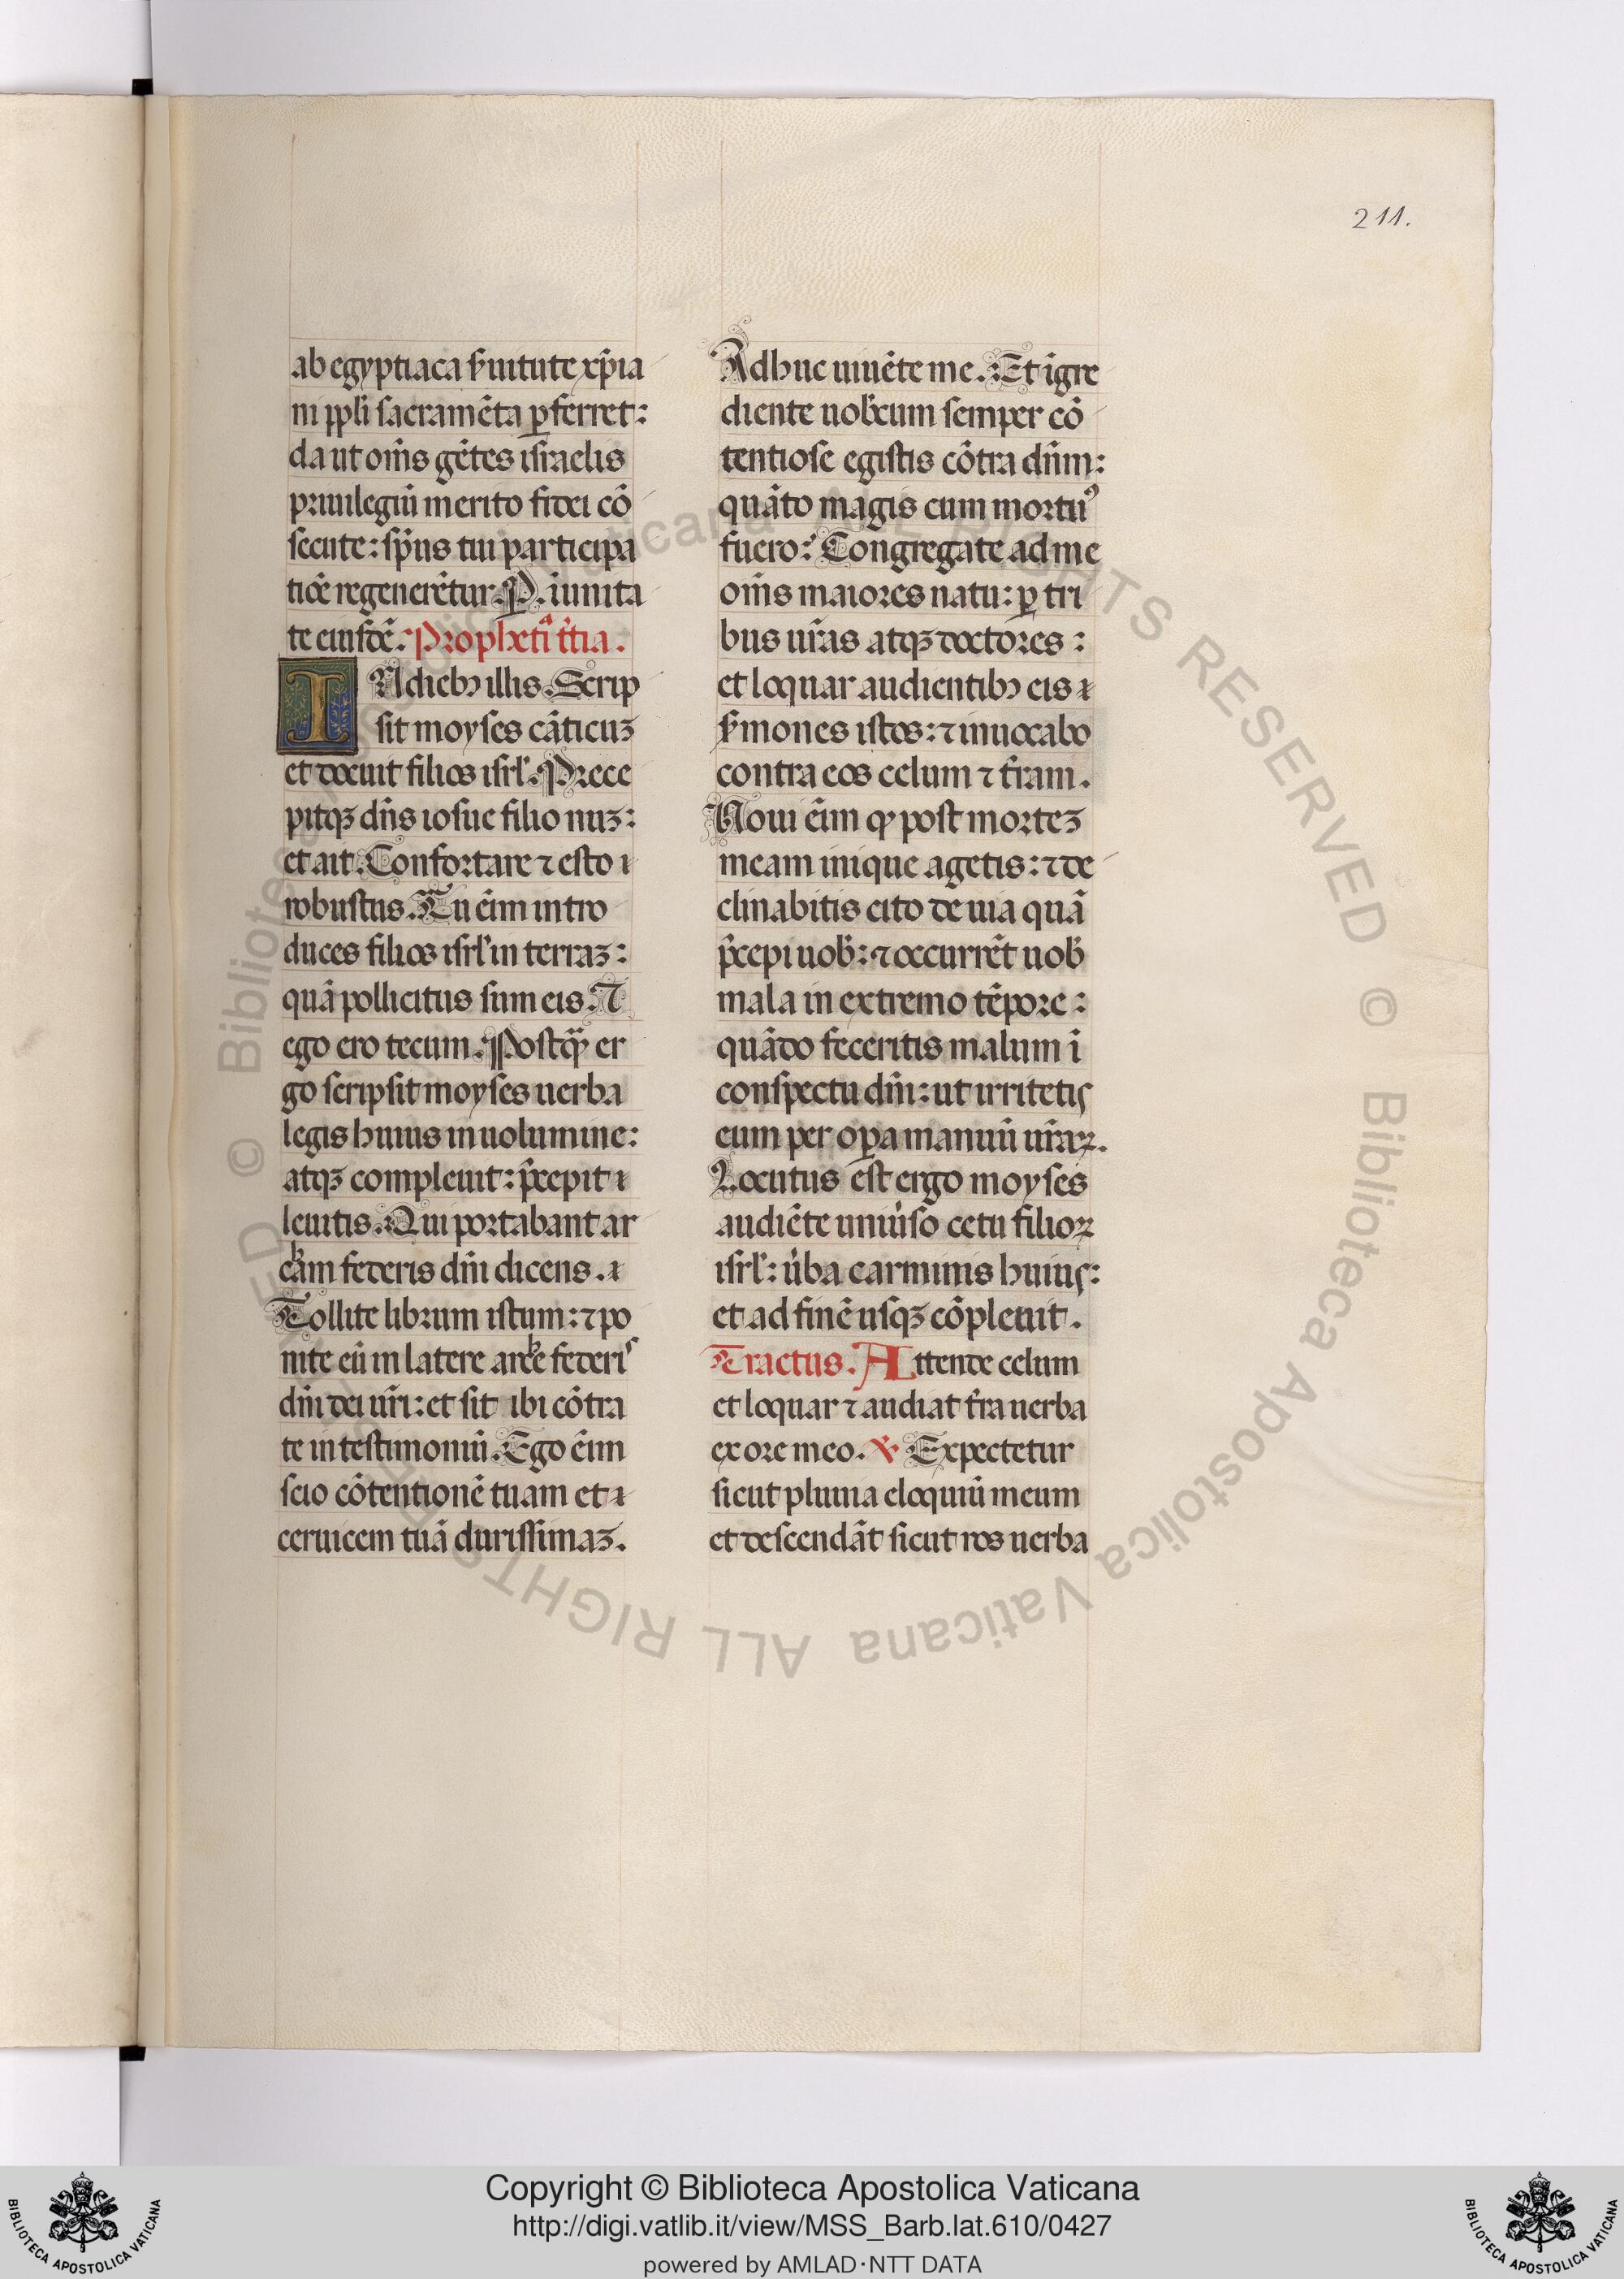 211.
ab egyptiaca s̾uitute xp̃ia
ni ppl̾i sacramẽta ꝑferret:
da ut om̃s gẽtes israelis
priuilegiũ merito fidei cõ
secute: sp̃us tui participa
tiõe regenerẽtur. P. i unita
te eiusdẽ. Propheti͛ t̾tia.
IN dieb; illis. Scrip
sit moyses cãticuʒ
et docuit filios isrl̾. Prece
pitqʒ dñs iosue filio nuʒ:
et ait. Confortare ⁊ esto
robustus. Tu eim̃ intro
duces filios isrl̾ in terraʒ:
quã pollicitus sum eis. ⁊
ego ero tecum. Postqꝫ̃ er
go scripsit moyses uerba
legis huius in uolumine:
atqʒ compleuit: p̃cepit
leuitis. Qui portabant ar
cham federis dñi dicens.
Tollite librum istum: ⁊ po
nite eũ in latere arche federis
dñi dei ur̃i: et sit ibi cõtra
te in testimoniũ. Ego eim̃
scio cõtentionẽ tuam et
ceruicem tuã durissimaʒ.
Adhuc uiuẽte me. Et ĩgre
diente uob̾cum semper cõ
tentiose egistis cõtra dñm:
quãto magis cum mortuꝰ
fuero: Congregate ad me
om̃s maiores natu: ꝑ tri
bus ur̃as atqʒ doctores:
et loquar audientib; eis
s̾mones istos: ⁊ inuocabo
contra eos celum ⁊ t̾ram.
Noui eim̃ ꝙ post morteʒ
meam inique agetis: ⁊ de
clinabitis cito de uia quã
p̃cepi uob̾: ⁊ occurrẽt uob̾
mala in extremo tẽpore:
quãdo feceritis malum ĩ
conspectu dñi: ut irritetis
eum per oꝑa manuũ ur̃aꝝ.
Locutus est ergo moyses
audiẽte uniu̾so cetu filioꝝ
isrl̾: u̾ba carminis huius:
et ad finẽ usqʒ cõpleuit.
Tractus. Attende celum
et loquar ⁊ audiat t̾ra uerba
ex ore meo. ℣ Expectetur
sicut pluuia eloquiũ meum
et descendãt sicut ros uerba
Copyright © Biblioteca Apostolica Vaticana
http://digi.vatlib.it/view/MSS_Barb.lat.610/0427
powered by AMLAD·NTT DATA
BIBLIOTECA APOSTOLICA VATICANA
BIBLIOTECA APOSTOLICA VATICANA
© Biblioteca Apostolica Vaticana ALL RIGHTS RESERVED © Biblioteca Apostolica Vaticana ALL RIGHTS RESERVED